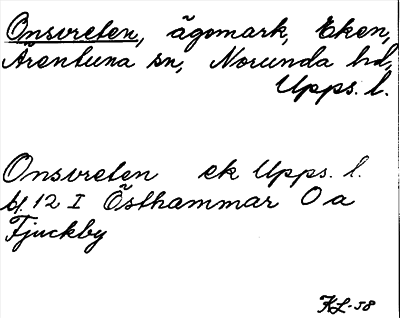 Onsvreten, ägomark, Eken,
Ärentuna sn, Norunda hd,
Upps. l.
Onsvreten ek Upps. l.
bl. 12 I Östhammar Oa
Fjuckby
KL-58